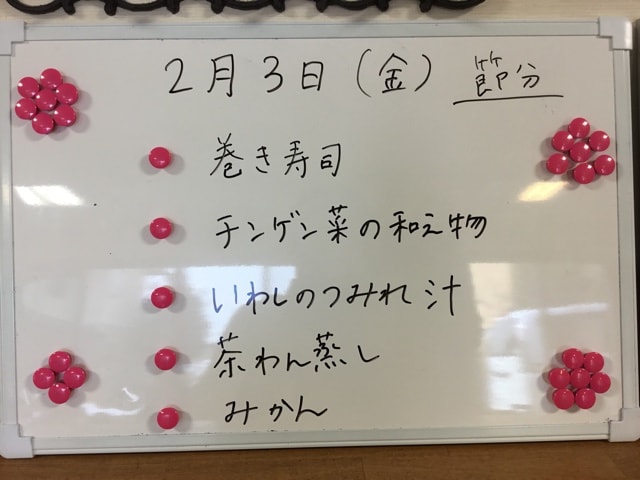 2月3日(金) 節分
巻き寿司
チンゲン菜の和え物
いわしのつみれ汁
茶わん蒸し
みかん